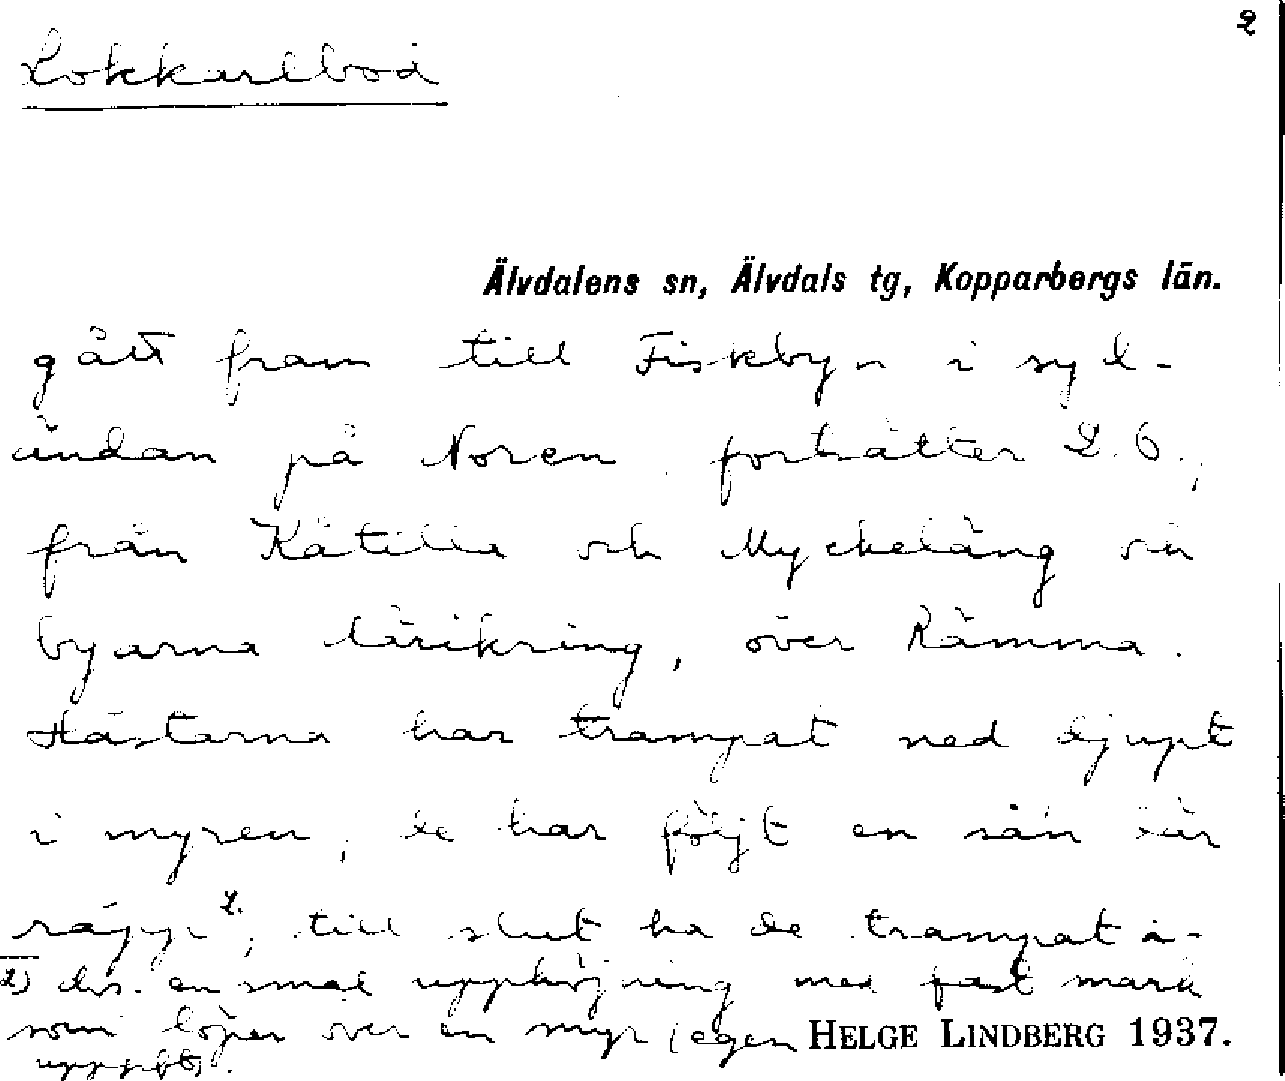 2
Lokkarlbod
Älvdalens sn, Älvdals tg, Kopparbergs län.
gått fram till Fiskbyn i syd-
ändan på Noren. fortsätter L.O.,
från Kåtilla och Myckeläng via
byarna häri kring, över Rämma.
Hästarna har trampat ned djupt
i myren, de har följt en sån där
2. till slut ha de trampat i-
2) dvs. en smal upphöjning med fast mark
som löper över en myr (egen HELGE LINDBERG 1937.